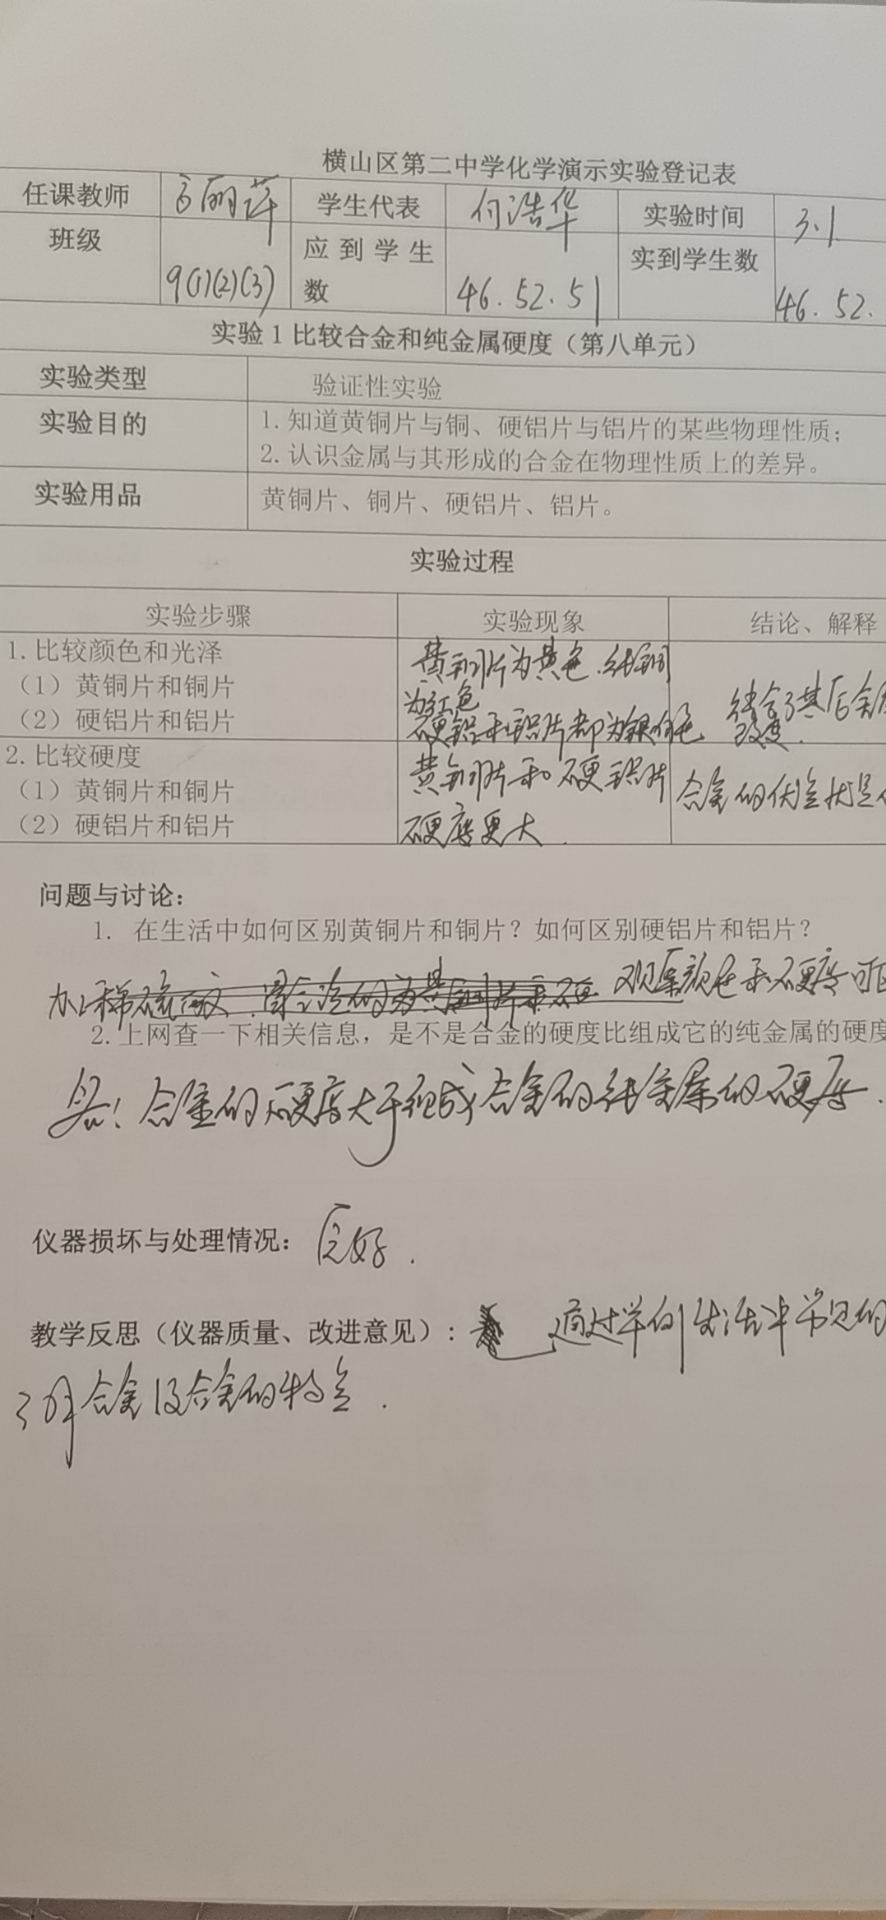 横山区第二中学化学演示实验登记表
任课教师 高丽萍 学生代表 何浩华 实验时间 3.1
班级 9(1)(2)(3) 应到学生数 46.52.51 实到学生数 46.52.
实验1 比较合金和纯金属硬度（第八单元）
实验类型 验证性实验
实验目的 1.知道黄铜片与铜、硬铝片与铝片的某些物理性质；
2.认识金属与其形成的合金在物理性质上的差异。
实验用品 黄铜片、铜片、硬铝片、铝片。
实验过程
实验步骤 实验现象 结论、解释
1.比较颜色和光泽
（1）黄铜片和铜片
（2）硬铝片和铝片
黄铜片为黄色.纯铜
为红色
硬铝和铝片都为银白色
改变.
2.比较硬度
（1）黄铜片和铜片
（2）硬铝片和铝片
黄铜片和硬铝片
硬度更大.
合金的
问题与讨论：
1. 在生活中如何区别黄铜片和铜片？如何区别硬铝片和铝片？
观察颜色和硬度可区
2.上网查一下相关信息，是不是合金的硬度比组成它的纯金属的硬度
答：合金的硬度大于组成合金的纯金属的硬度.
仪器损坏与处理情况：良好.
教学反思（仪器质量、改进意见）：通过举例生活中常见的
了解合金及合金的特点.